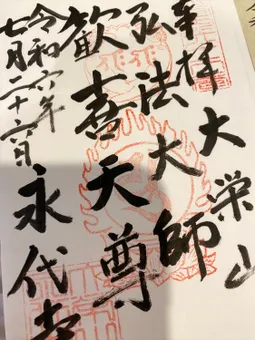 奉拝 大栄山
弘法大師
歡喜天尊
令和六年
七月二十六日
永代寺